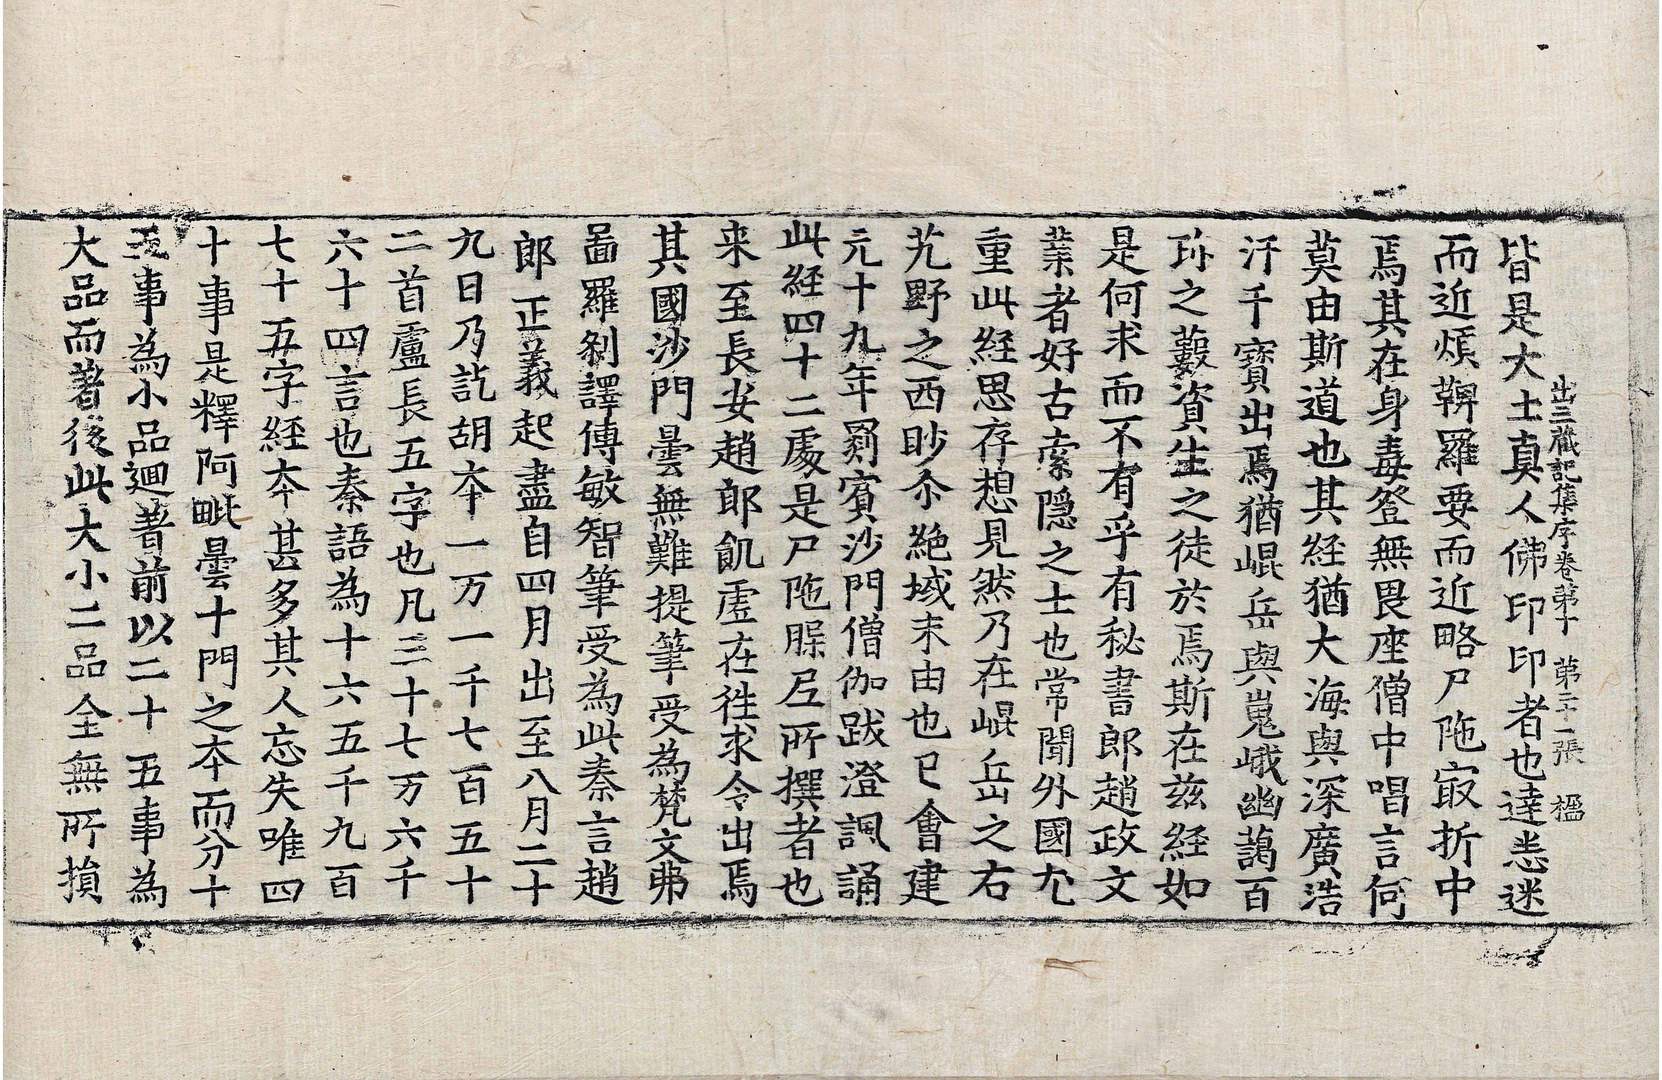 出三藏記集序卷第十　第二十一張　楹
皆是大士真人佛印印者也達悉迷
而近煩鞞羅要而近略尸陁㝡折中
焉其在身毒登無畏座僧中唱言何
莫由斯道也其經猶大海與深廣浩
汗千寶出焉猶崐岳與嵬峨幽藹百
珎之藪資生之徒於焉斯在茲經如
是何求而不有乎有秘書郎趙政文
業者好古索隱之士也常聞外國尤
重此經思存想見然乃在崐岳之右
艽野之西眇尒絶域末由也已會建
元十九年罽賓沙門僧伽跋澄諷誦
此經四十二處是尸陁䏣尼所撰者也
来至長安趙郎飢虛在徃求令出焉
其國沙門曇無難提筆受為梵文弗
啚羅剎譯傳敏智筆受為此秦言趙
郎正義起盡自四月出至八月二十
九日乃訖胡夲一万一千七百五十
二首盧長五字也凡三十七万六千
六十四言也秦語為十六五千九百
七十五字經夲甚多其人忘失唯四
十事是釋阿毗曇十門之夲而分十
五事為小品迴著前以二十五事為
大品而著後此大小二品全無所損